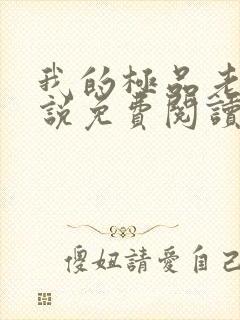 我的極品老
說免費閱讀
傻妞請愛自己